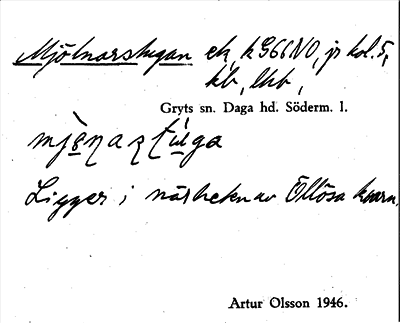 Mjölnarstugan ek, k 9G6NO, jr kol. 5,
kb, lhb,
Gryts sn. Daga hd. Söderm. l.
Ligger i närheten av Öllösa kvarn.
Artur Olsson 1946.